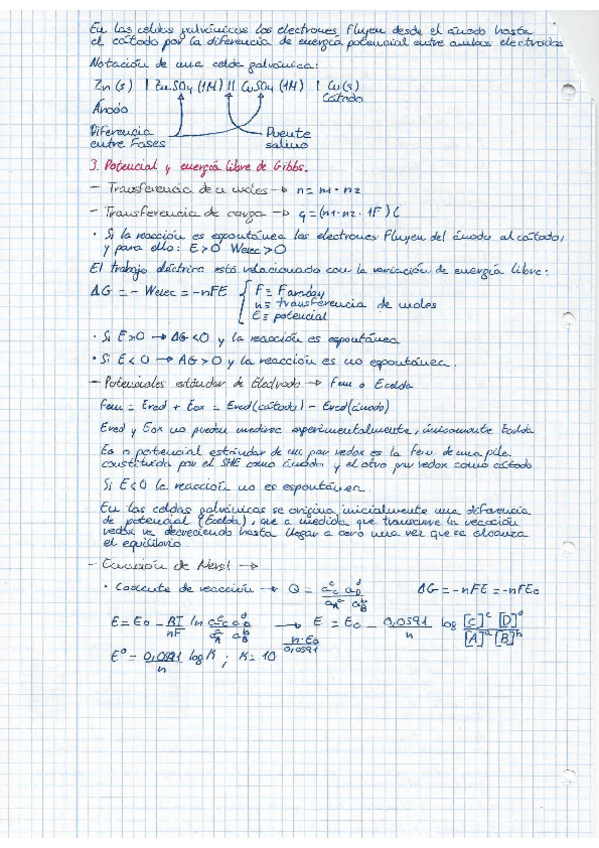 En las celdas galvánicas los electrones fluyen desde el ánodo hasta
el cátodo por la diferencia de energía potencial entre ambos electrodos
Notación de una celda galvánica:
Zn(s) | ZnSO4 (1M) || CuSO4 (1M) | Cu(s)
Ánodo Cátodo
Diferencia Puente
entre Fases salino
3. Potencial y energía libre de Gibbs.
- Transferencia de n moles → n = n1 · n2
- Transferencia de carga → q = (n1·n2 · 1F) C
· Si la reacción es espontánea los electrones fluyen del ánodo al cátodo,
y para ello: E>0 Welec>0
El trabajo eléctrico está relacionado con la variación de energía libre:
ΔG = - Welec = -nFE { F ≡ Faraday
n ≡ transferencia de moles
E ≡ potencial
· Si E>0 → ΔG<0 y la reacción es espontánea
· Si E<0 → ΔG>0 y la reacción es no espontánea.
- Potenciales estándar de Electrodo → Fem o Ecelda
Fem = Ered + Eox = Ered(cátodo) - Ered(ánodo)
Ered y Eox no pueden medirse experimentalmente, únicamente Ecelda
Eo o potencial estándar de un par redox es la fem. de una pila
constituida por el SHE como ánodo y el otro par redox como cátodo
Si E<0 la reacción no es espontánea.
En las celdas galvánicas se origina inicialmente una diferencia
de potencial (Ecelda), que a medida que transcurre la reacción
redox va decreciendo hasta llegar a cero una vez que se alcanza
el equilibrio
- Ecuación de Nerst →
· Cociente de reacción → Q = aCc aDd / aAa aBb ΔG = -nFE = -nFE0
E = E0 - RT/nF ln aCc aDd / aAa aBb → E = E0 - 0,0591/n log [C]c [D]d / [A]a [B]b
E° = 0,0591/n log K ; K = 10 n·E0/0,0591